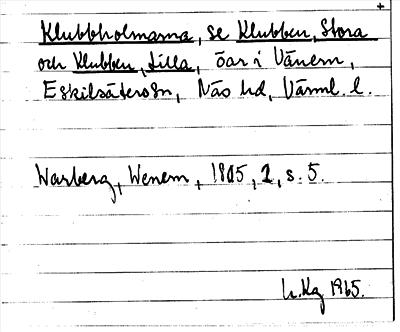 Klubbholmarna, se Klubben, Stora
och Klubben, Lilla, öar i Vänern,
Eskilsäters sn, Näs hd, Värml. l.
Warberg, Wenern, 1805, 2, s. 5.
1965.